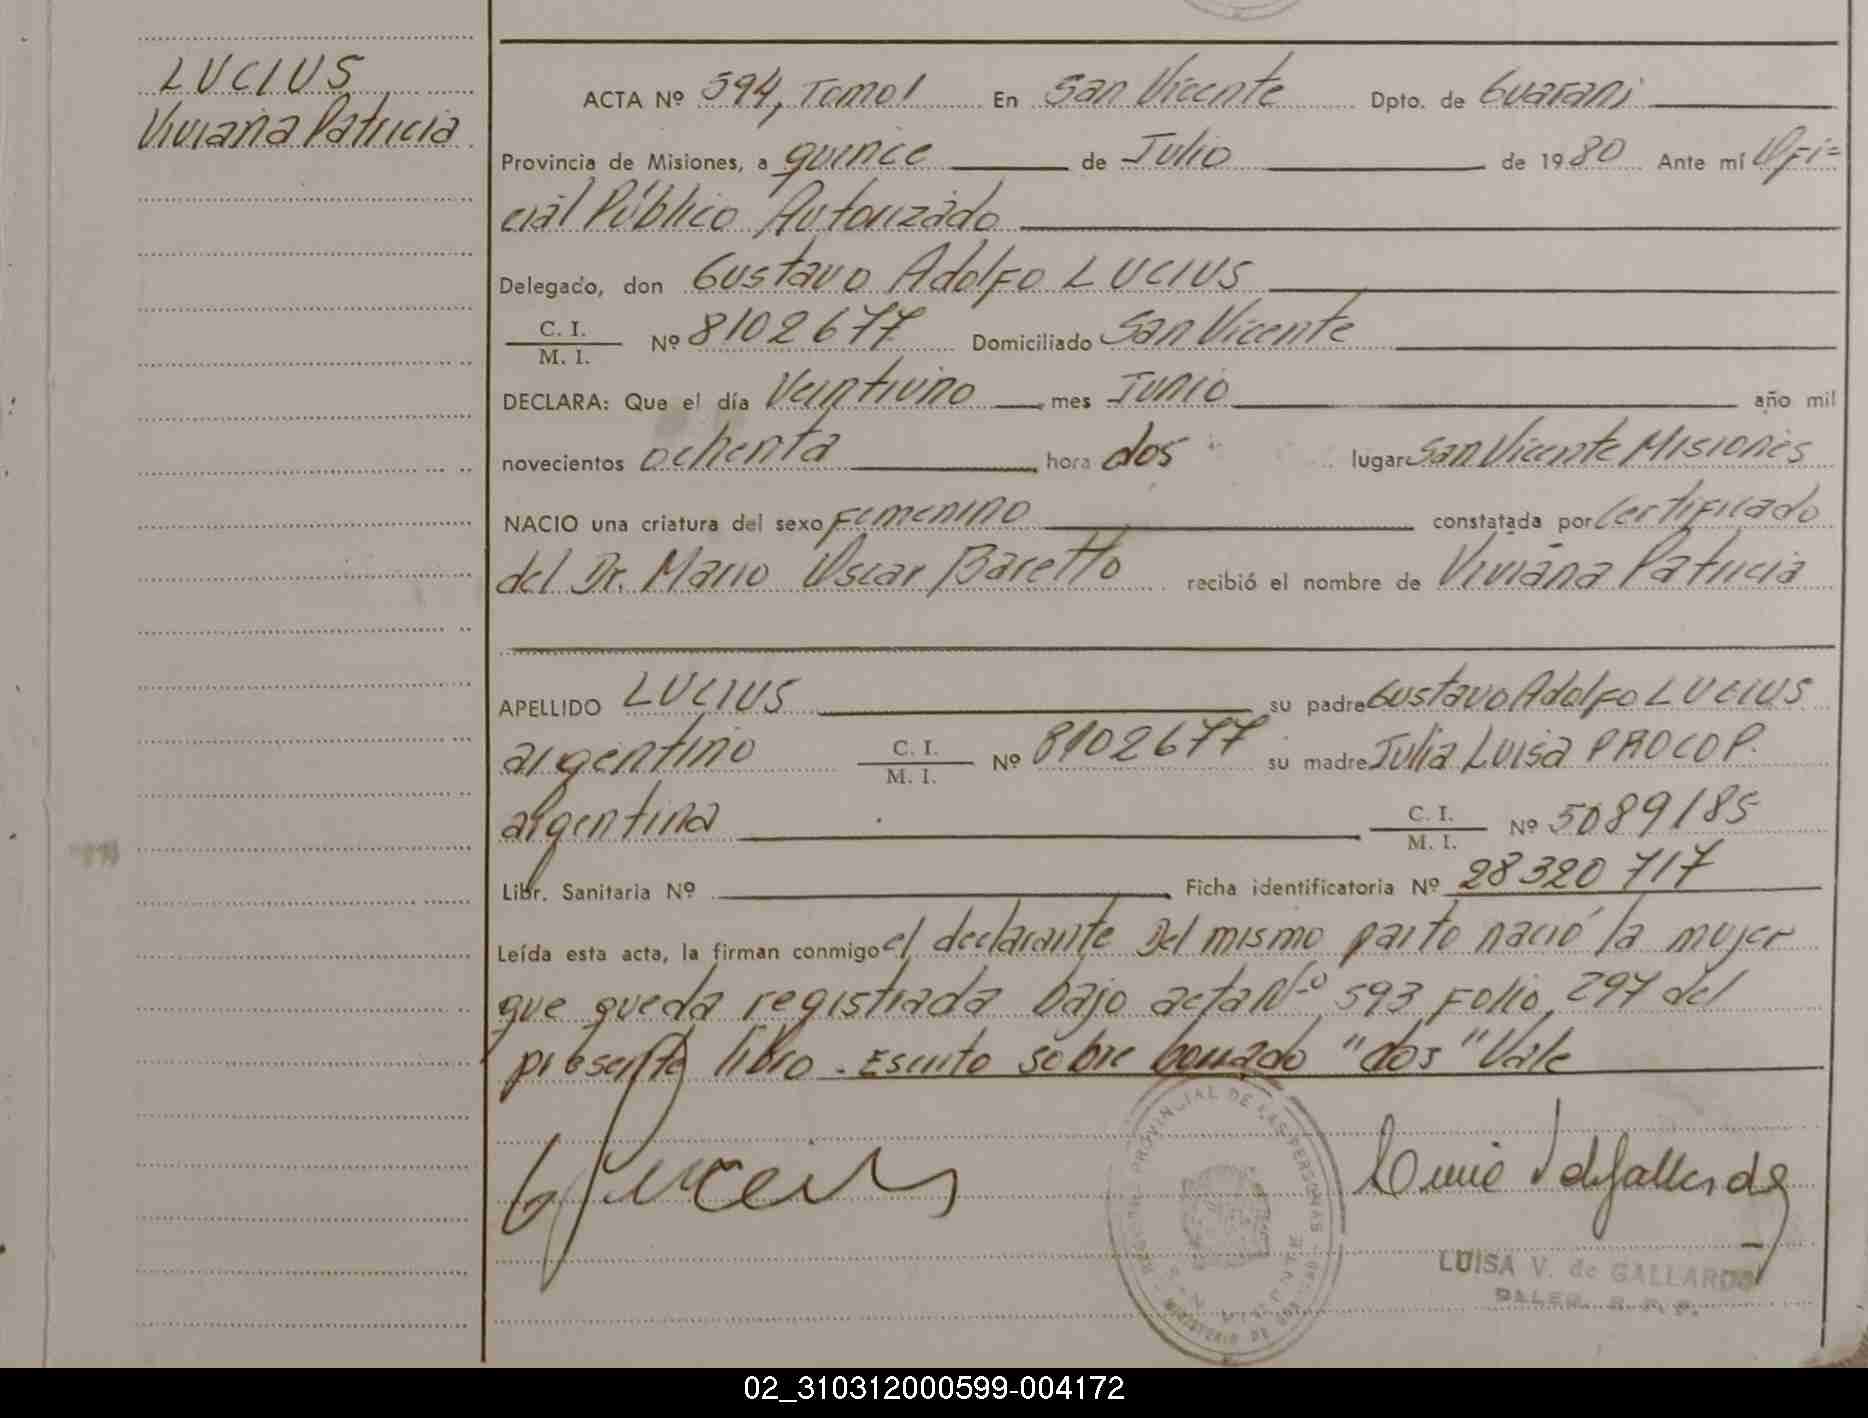 LUCIUS
Viviana Patricia
ACTA Nº 594, Tomo I En San Vicente Dpto. de Guarani
Provincia de Misiones, a quince de Julio de 1980 Ante mí Ofi=
cial Público Autorizado
Delegado, don Gustavo Adolfo LUCIUS
C. I.
M. I. Nº 8102677 Domiciliado San Vicente
DECLARA: Que el día Veintiuno mes Junio año mil
novecientos ochenta hora dos lugar San Vicente Misiones
NACIO una criatura del sexo Femenino constatada por Certificado
del Dr. Mario Oscar Baretto recibió el nombre de Viviana Patricia
APELLIDO LUCIUS su padre Gustavo Adolfo LUCIUS
argentino C. I.
M. I. Nº 8102677 su madre Julia Luisa PROCOP.
argentina C. I.
M. I. Nº 5089185
Libr. Sanitaria Nº Ficha identificatoria Nº 28320717
Leída esta acta, la firman conmigo el declarante Del mismo parto nació la mujer
que queda registrada bajo acta Nº 593 Folio 297 del
presente libro. Escrito sobre borrado "dos" Vale
REGISTRO PROVINCIAL DE LAS PERSONAS
SAN VICENTE
MINISTERIO DE GOB.
LUISA V. de GALLARDO
02_310312000599-004172